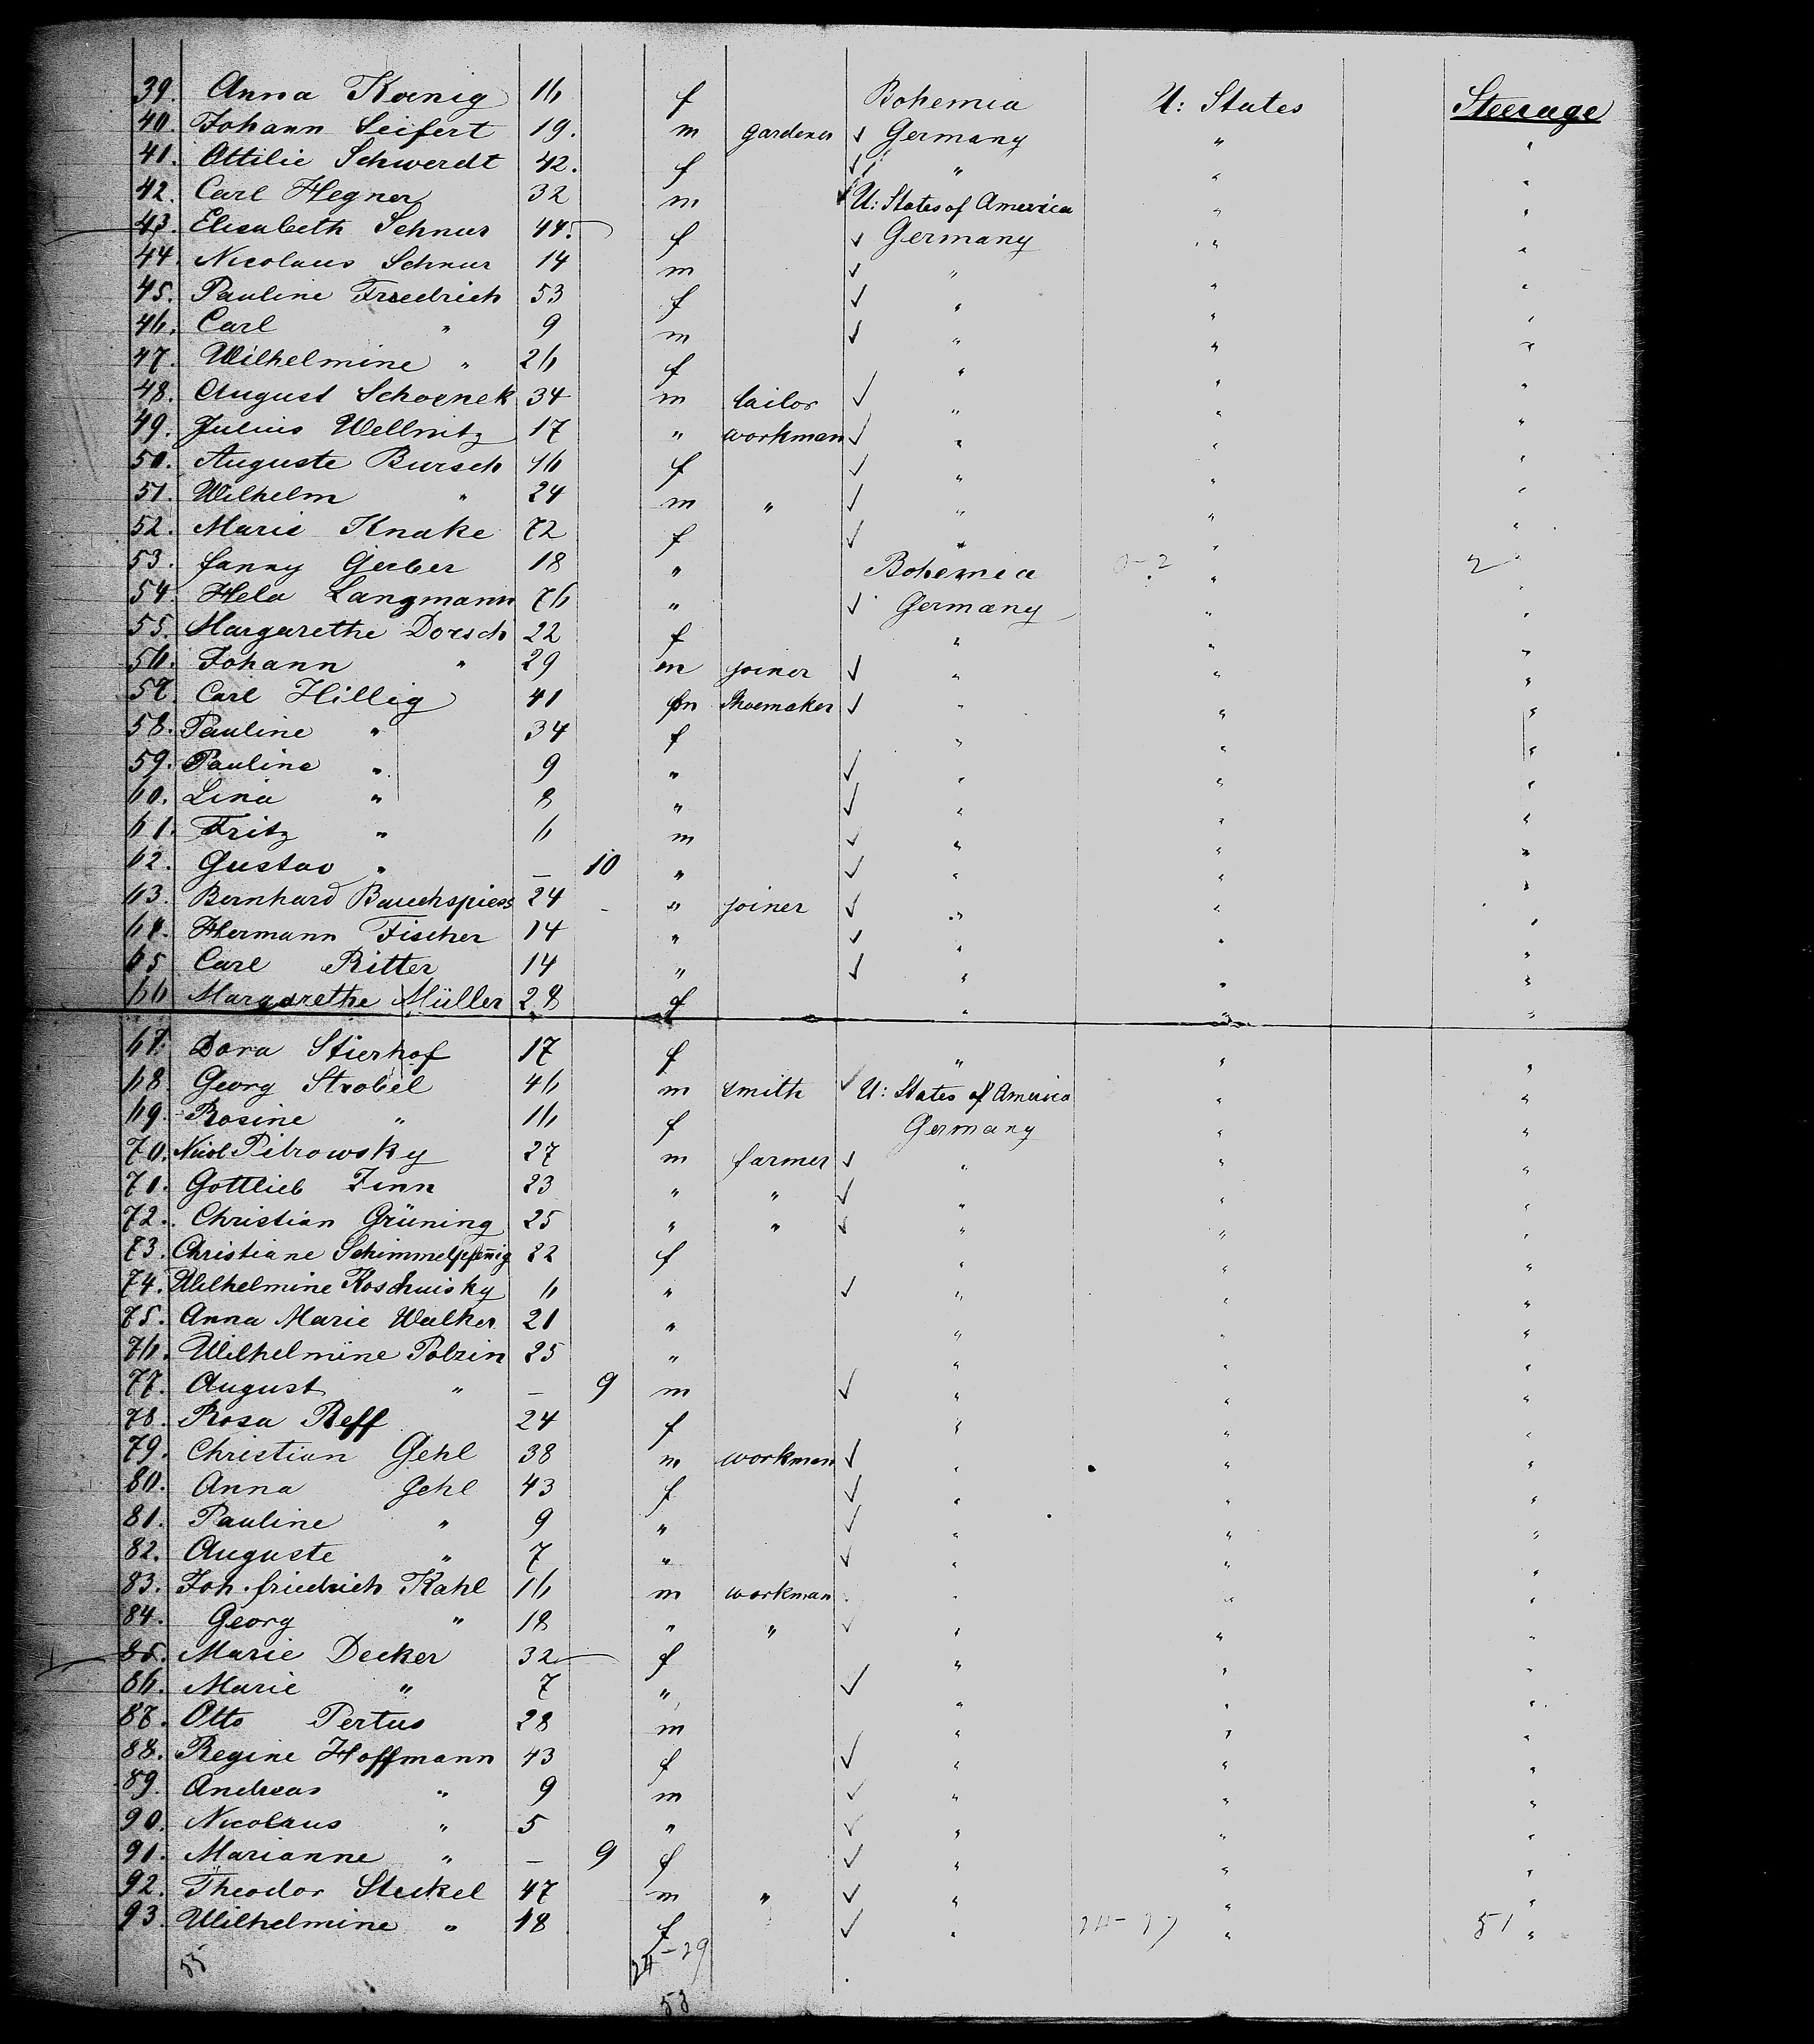 39. Anna Koenig 16 f Bohemia U: States Steerage
40. Johann Seifert 19. m gardener ✓ Germany " "
41. Ottilie Schwerdt 42. f ✓ " " "
42. Carl Hegner 32 m ✓ U: States of America " "
43. Elisabeth Schnur 44. f ✓ Germany " "
44. Nicolaus Schnur 14 m ✓ " " "
45. Pauline Friedrich 53 f ✓ " " "
46. Carl " 9 m ✓ " " "
47. Wilhelmine " 26 f " " "
48. August Schoenek 34 m tailor ✓ " " "
49. Julius Wellnitz 17 " workman ✓ " " "
50. Auguste Bursch 46 f ✓ " " "
51. Wilhelm " 24 m " ✓ " " "
52. Marie Knake 72 f ✓ " " "
53. fanny Gerber 18 " Bohemia " 2 "
54. Hela Langmann 76 " ✓ Germany " "
55. Margarethe Dorsch 22 f " " "
56. Johann " 29 m joiner ✓ " " "
57. Carl Hillig 41 m Shoemaker ✓ " " "
58. Pauline " 34 f " " "
59. Pauline " 9 " ✓ " " "
60. Lina " 8 " ✓ " " "
61. Fritz " 6 m ✓ " " "
62. Gustav " — 10 " ✓ " " "
63. Bernhard Bauchspiess 24 - " joiner ✓ " " "
64. Hermann Fischer 14 " ✓ " " "
65 Carl Ritter 14 " ✓ " " "
66 Margarethe Müller 28 f " " "
67. Dora Stierhof 17 f " " "
68 Georg Strobel 46 m smith ✓ U: States of America " "
69. Rosine " 16 f Germany " "
70. Nicol Pitrowsky 27 m farmer ✓ " " "
71. Gottlieb Zinn 23 " " ✓ " " "
72. Christian Grüning 25 " " ✓ " " "
73. Christiane Schimmelpfennig 22 f " " "
74. Wilhelmine Koschuisky 6 " ✓ " " "
75. Anna Marie Walker 21 " " " "
76. Wilhelmine Polzin 25 " " " "
77. August " — 9 m ✓ " " "
78. Rosa Reff 24 f " " "
79. Christian Gehl 38 m workman ✓ " " "
80. Anna Gehl 43 f ✓ " " "
81. Pauline " 9 " ✓ " " "
82. Auguste " 7 " ✓ " " "
83. Joh. friedrich Kahl 16 m workman " " "
84. Georg " 18 " " ✓ " " "
85. Marie Decker 32 f " " "
86. Marie " 7 " ✓ " " "
87. Otto Pertus 28 m " " "
88. Regine Hoffmann 43 f ✓ " " "
89. Andreas " 9 m ✓ " " "
90. Nicolaus " 5 " ✓ " " "
91. Marianne " — 9 f ✓ " " "
92. Theodor Steckel 47 m " ✓ " " "
93. Wilhelmine " 18 f ✓ " " 51 "
55 24-29
53